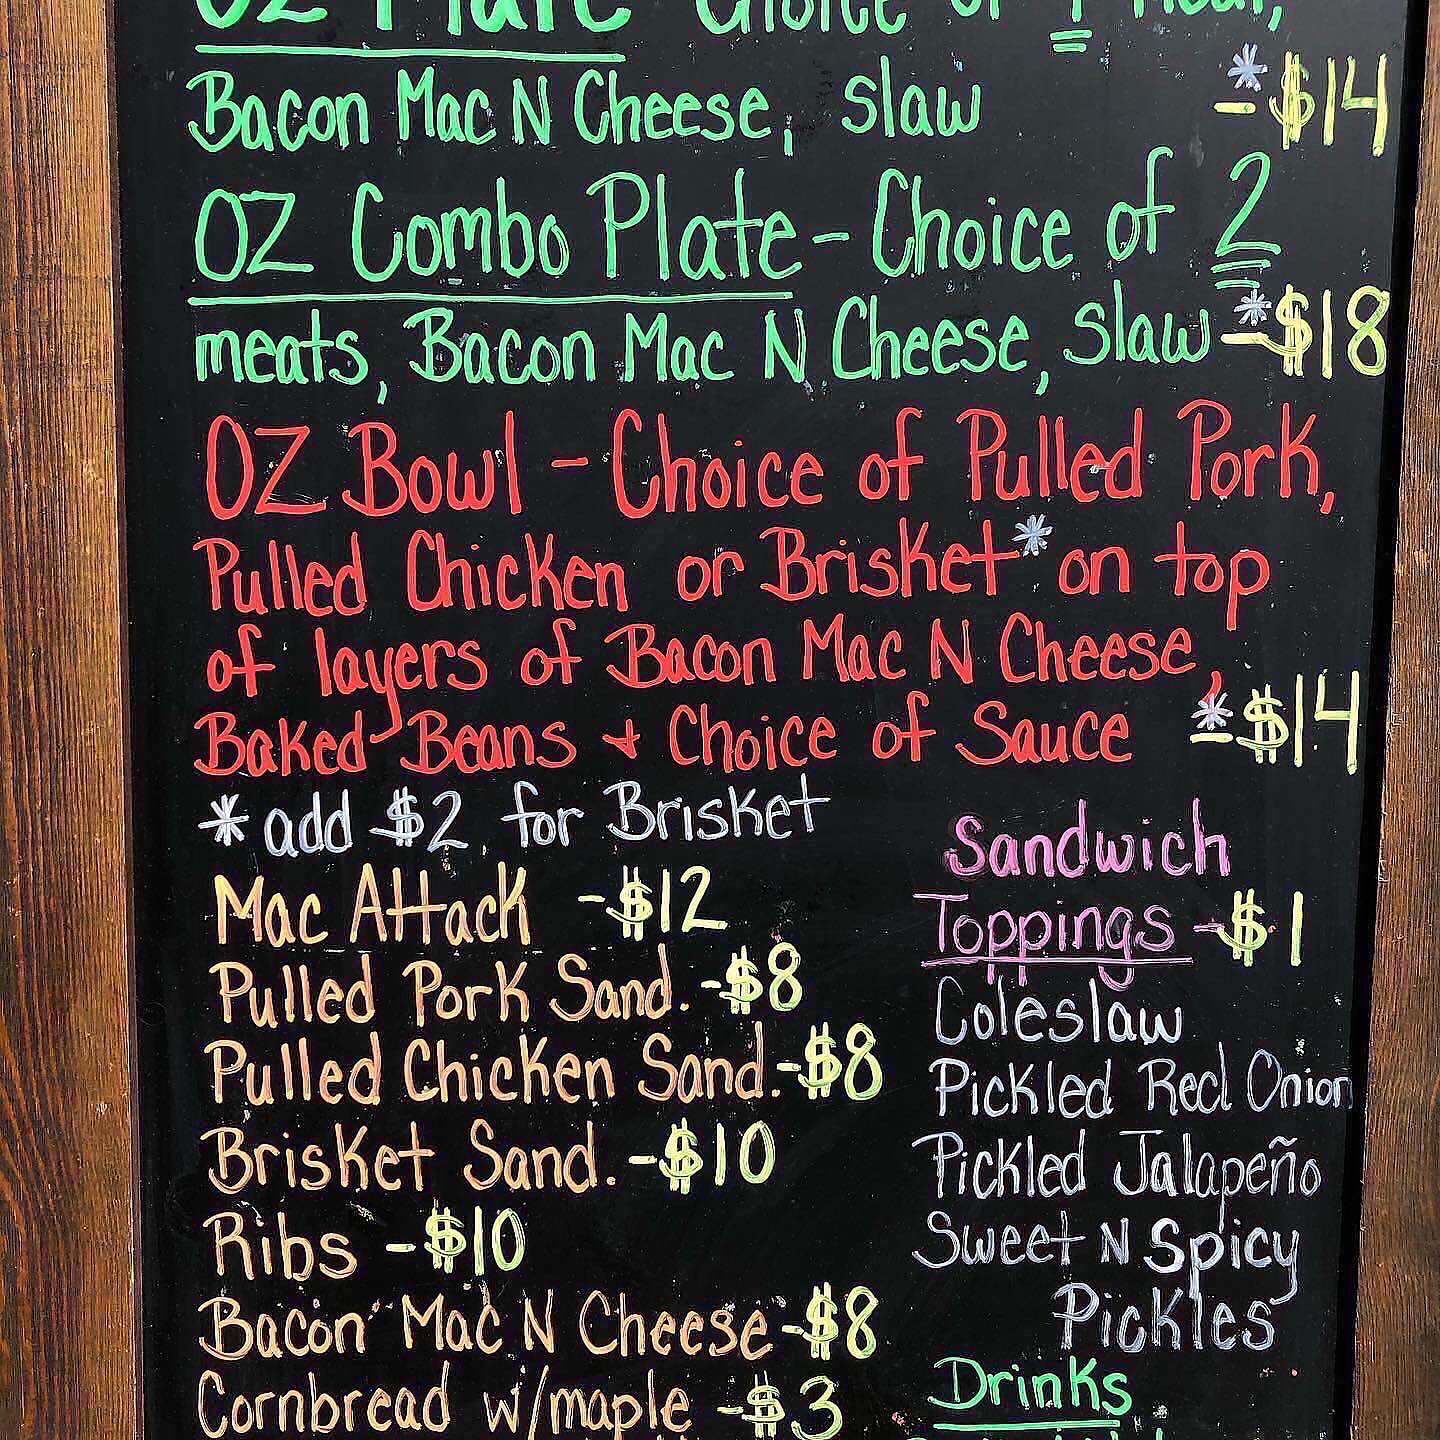 OZ Plate Choice of 1 Meat,
Bacon Mac N Cheese, slaw *-$14
OZ Combo Plate - Choice of 2
meats, Bacon Mac N Cheese, slaw *-$18
OZ Bowl - Choice of Pulled Pork,
Pulled Chicken or Brisket* on top
of layers of Bacon Mac N Cheese,
Baked Beans + Choice of Sauce *-$14
*add $2 for Brisket
Mac Attack -$12
Pulled Pork Sand. -$8
Pulled Chicken Sand. -$8
Brisket Sand. -$10
Ribs -$10
Bacon Mac N Cheese -$8
Cornbread w/maple -$3
Sandwich
Toppings -$1
Coleslaw
Pickled Red Onion
Pickled Jalapeño
Sweet N Spicy
Pickles
Drinks